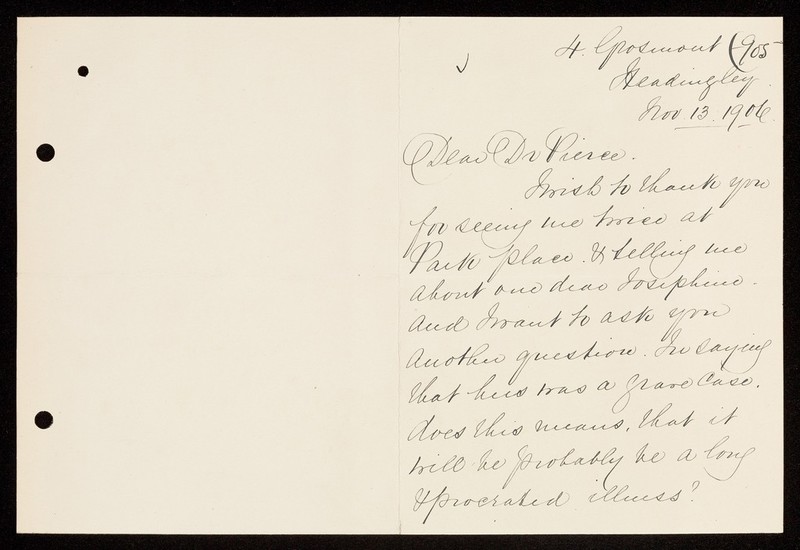 4. Grosmont (905
Headingley.
Nov 13. 1906.
Dear Dr Pierce.
I wish to thank you
for seeing me twice at
Park place. & telling me
about our dear Josephine.
And I want to ask you
another question. In saying
that hers was a grave case.
does this means, that it
will be probably be a long
& procrated illness?